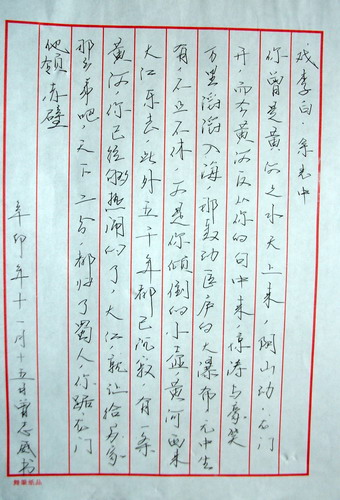 戏李白 余光中
你曾是黄河之水天上来,阴山动,龙门
开,而今黄河反从你的句中来,惊涛与豪笑
万里滔滔入海,那轰动匡庐的大瀑布,无中生
有,不止不休,可是你倾倒的小壶,黄河西来
大江东去,此外五千年都已沉寂,有一条
黄河,你已经够热闹的了,大江,就让给苏家
那乡弟吧,天下二分,都归了蜀人,你踞龙门
他领赤壁
辛卯年十一月十五日曾志威书
纸品